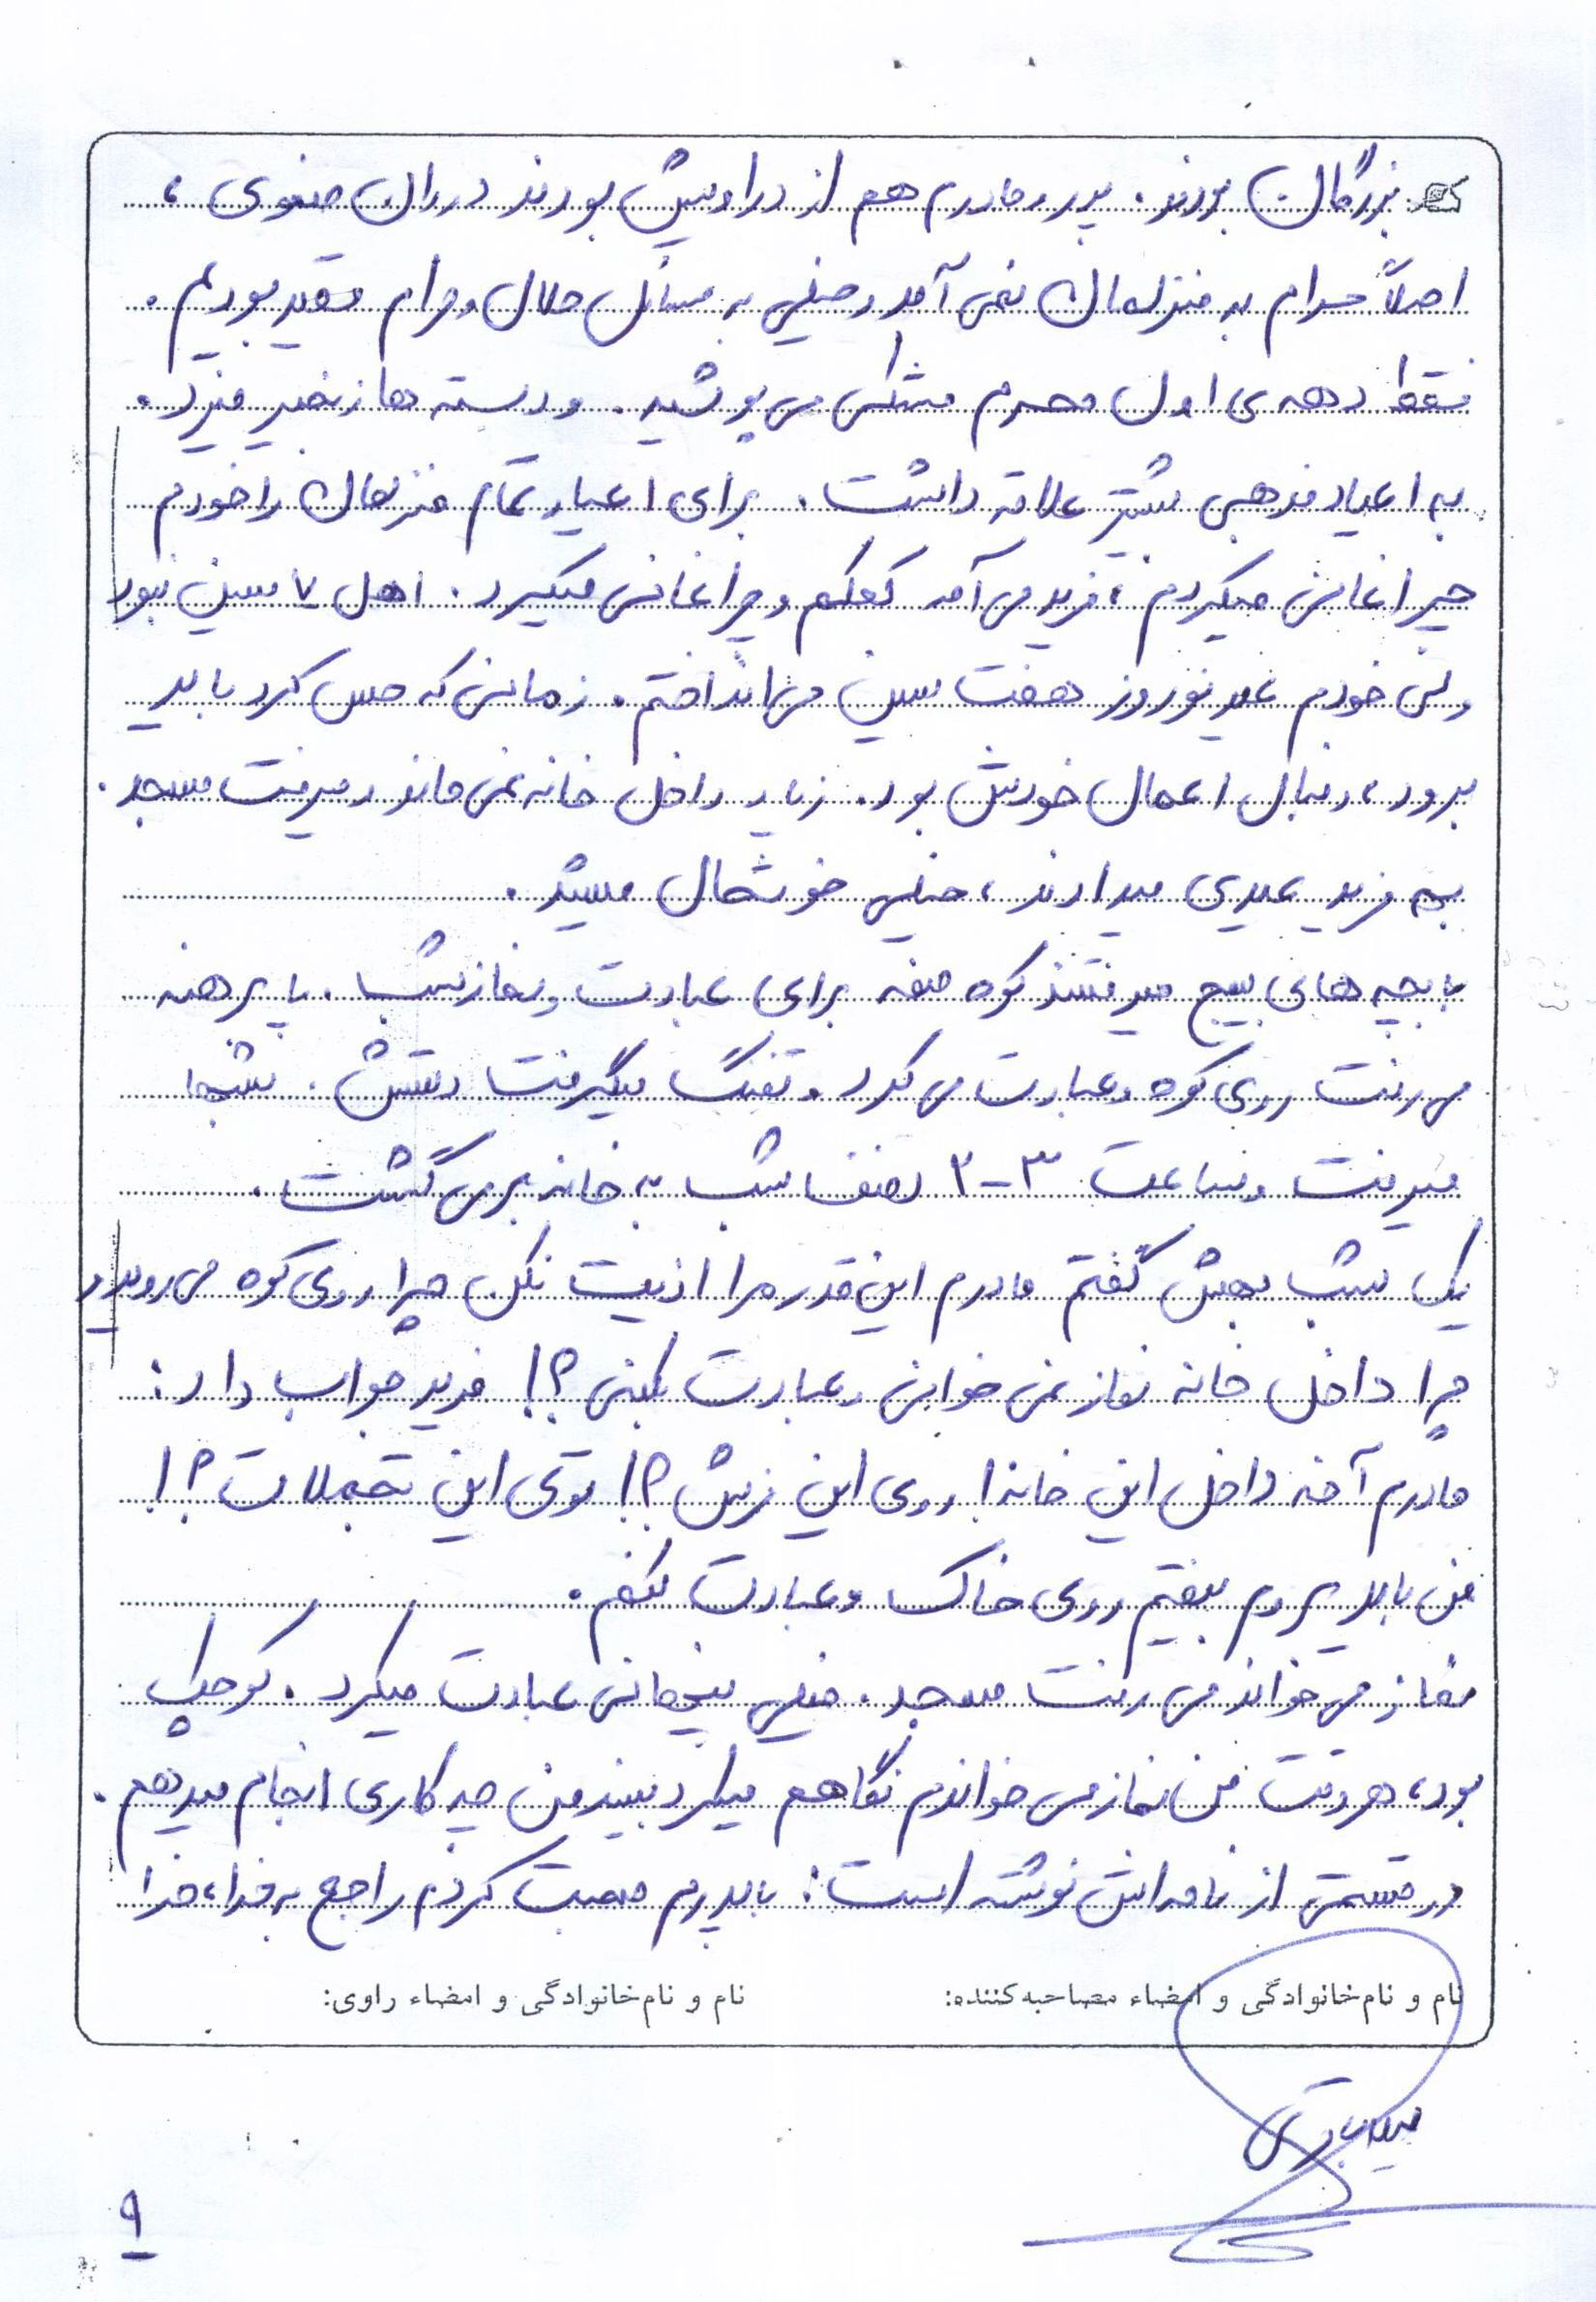 بزرگان بودند. پدر و مادرم هم از دراویش بودند در دوران صفوی،
اصلاً حرام به منزلمان نمی آمد و خیلی به مسائل حلال و حرام مقید بودیم.
فقط دهه ی اول محرم مشکی می پوشید. و دسته ها زنجیر میزد.
به اعیاد مذهبی بیشتر علاقه داشت. برای اعیاد تمام منزلمان را خودم
چراغانی میکردم، فرید می آمد کمکم و چراغانی میکرد. اهل ۷ سین نبود
ولی خودم عید نوروز هفت سین می انداختم. زمانی که حس کرد باید
برود، دنبال اعمال خودش بود. زیاد داخل خانه نمی ماند و میرفت مسجد.
به فرید عیدی میدادند، خیلی خوشحال میشد.
با بچه های بسیج میرفتند کوه صفه برای عبادت و نماز شب. پا برهنه
می رفت روی کوه و عبادت می کرد و تفنگ میگرفت دستش. شبها
میرفت و ساعت ۳-۲ نصف شب به خانه برمی گشت.
یک شب بهش گفتم مادرم این قدر مرا اذیت نکن چرا روی کوه می روید و
چرا داخل خانه نماز نمی خوانی و عبادت بکنی؟! فرید جواب داد:
مادرم آخه داخل این خانه! روی این فرش؟! توی این تجملات؟!
من باید بروم بیفتم روی خاک و عبادت بکنم.
نماز می خواند می رفت مسجد. خیلی پنهانی عبادت میکرد. کوچک
بود، هر وقت من نماز می خواندم نگاهم میکرد ببیند من چه کاری انجام میدهم.
در قسمتی از نامه اش نوشته است: با پدرم صحبت کردم راجع به خدا، خدا
نام و نام خانوادگی و امضاء مصاحبه کننده: نام و نام خانوادگی و امضاء راوی:
۹